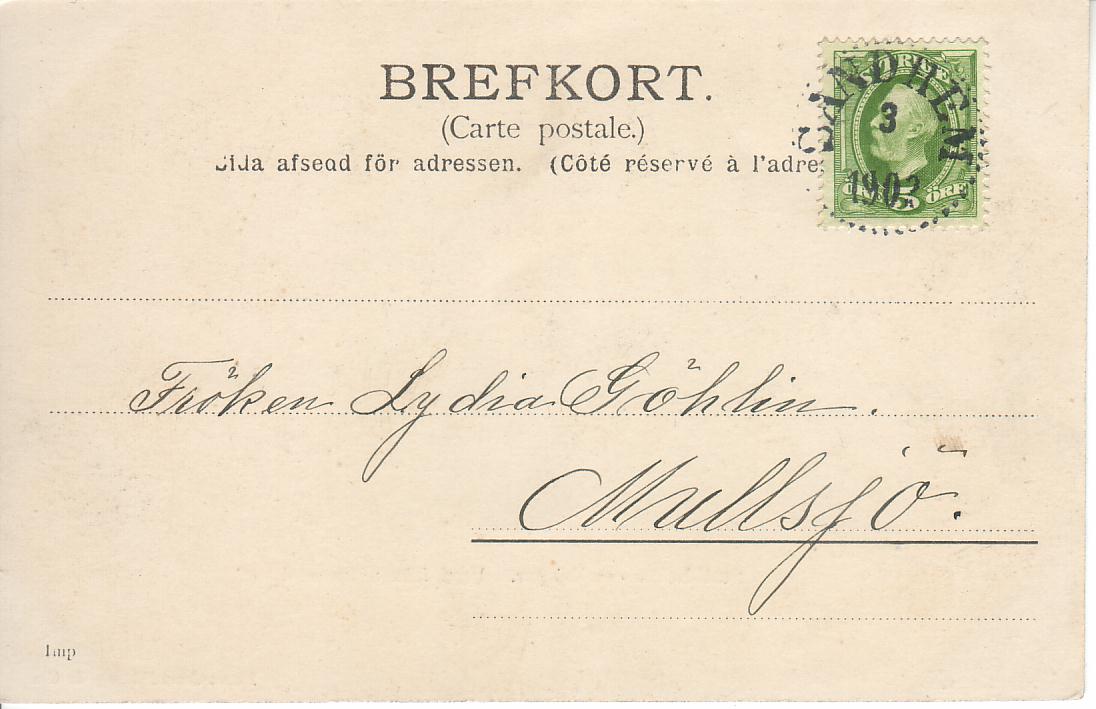 BREFKORT.
(Carte postale.)
Sida afsedd för adressen. (Côté réservé à l'adre
SVERIGE
SANDHEM
3
190
ÖRE 5 ÖRE
Fröken Lydia Göhlin.
Mullsjö.
Imp